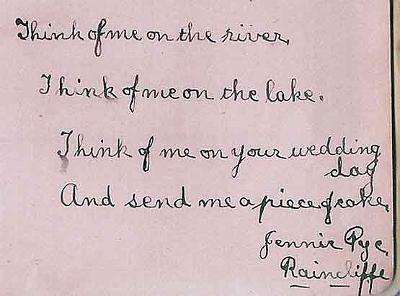 Think of me on the river,
Think of me on the lake.
Think of me on your wedding
day
And send me a piece of cake,
Jennie Pye.
Raincliffe